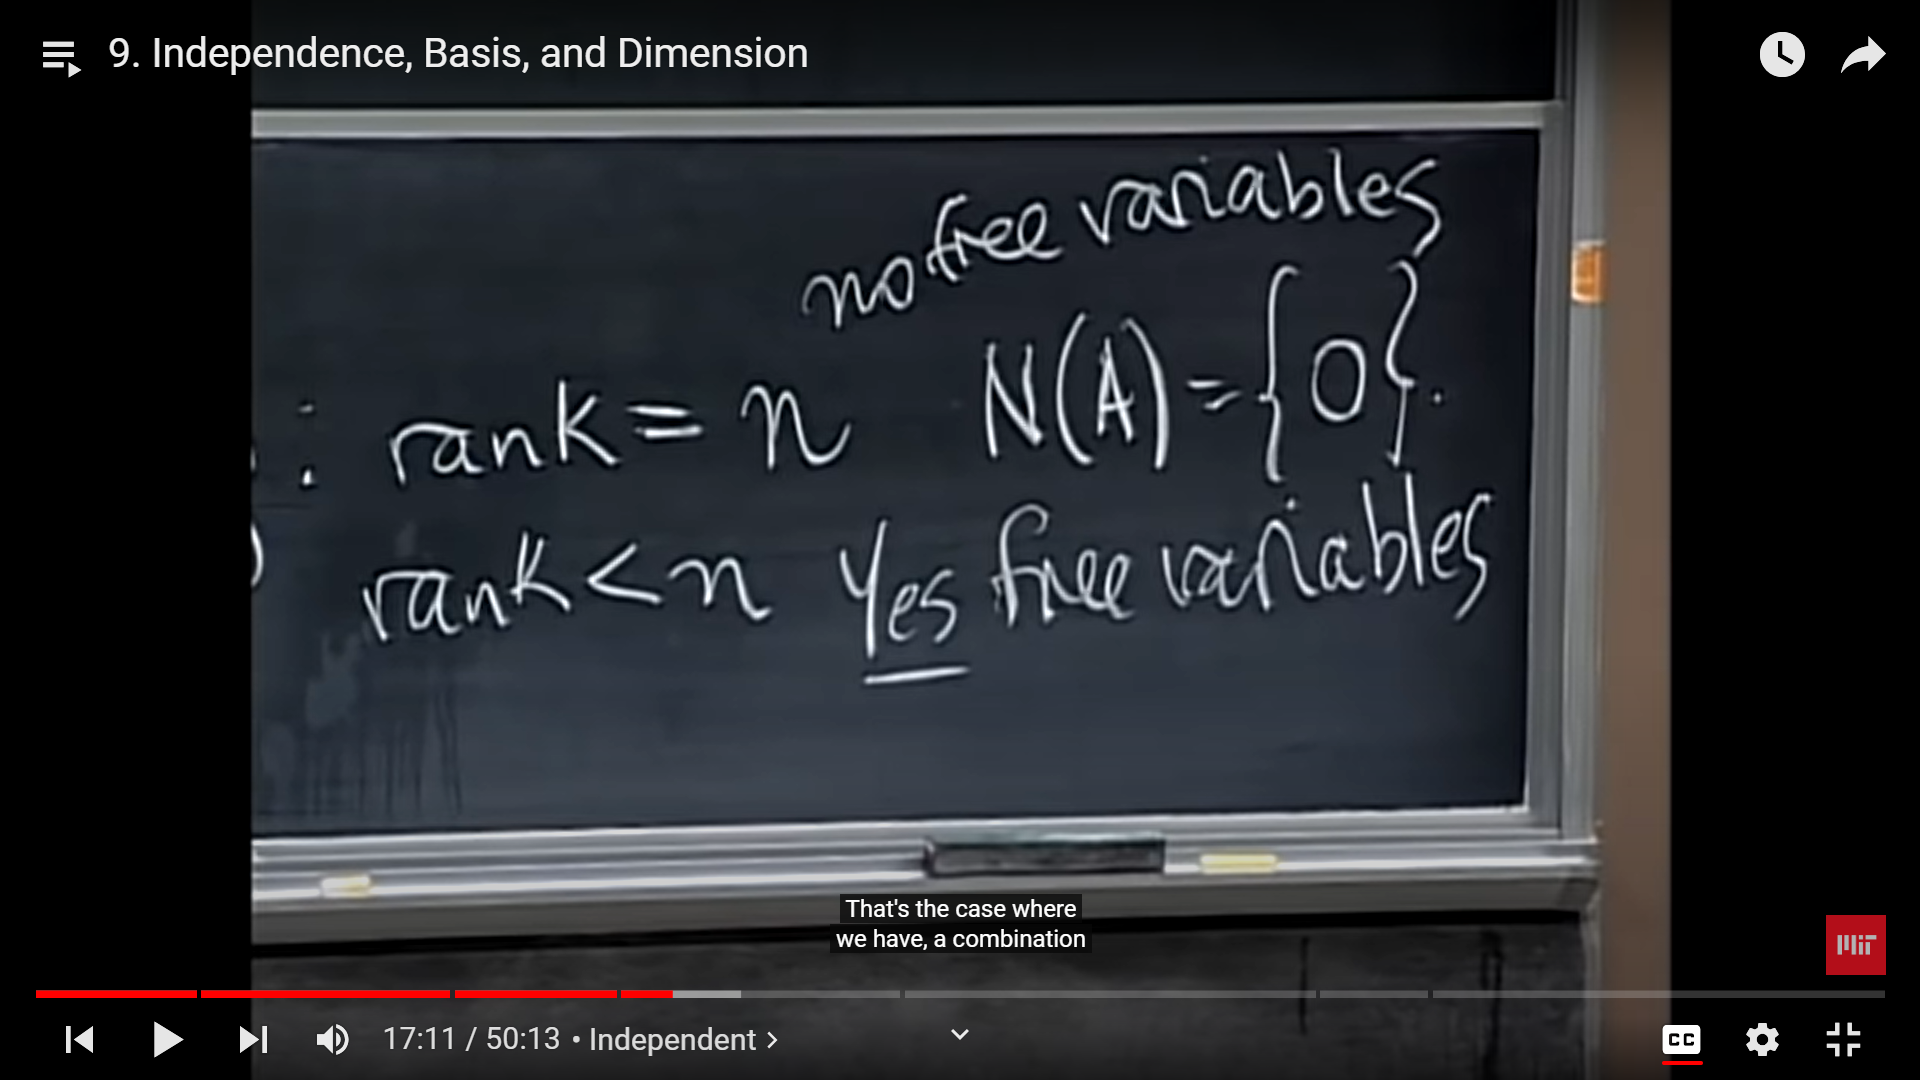 9. Independence, Basis, and Dimension
no free variables
: rank = n N(A) = {0}.
) rank < n Yes free variables
That's the case where
we have, a combination
MIT
17:11 / 50:13 • Independent >
CC